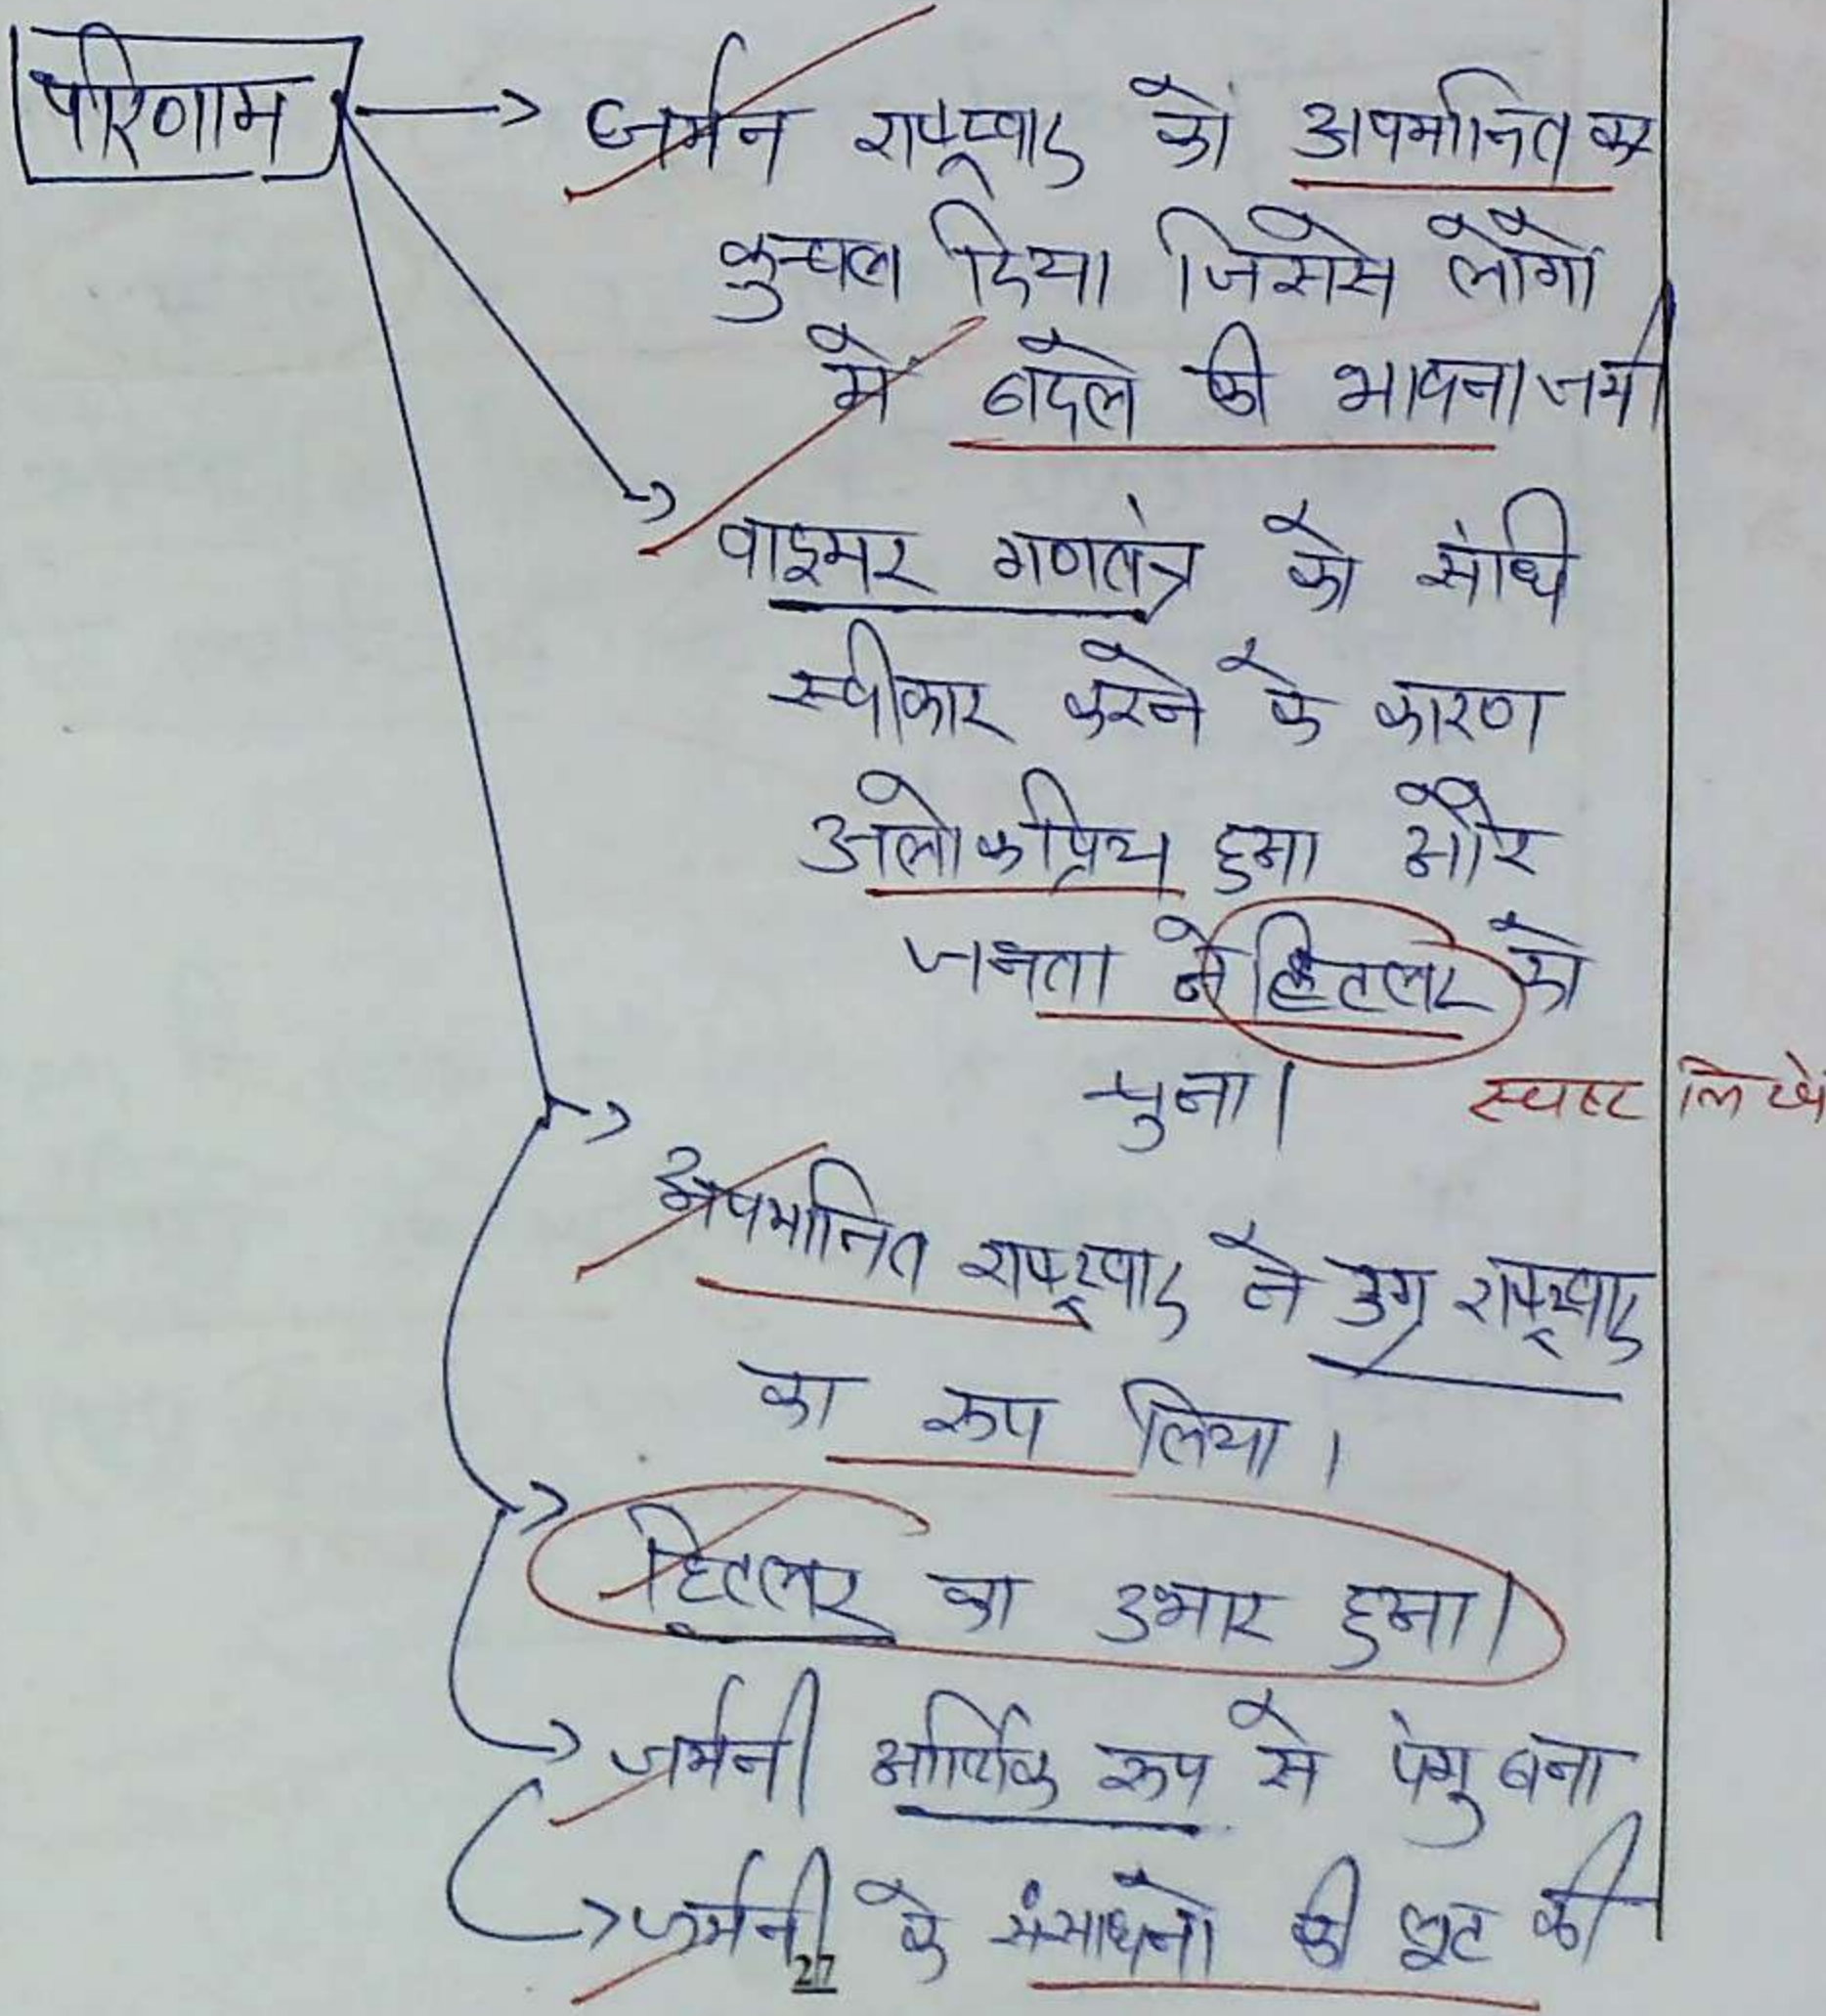 परिणाम → जर्मन राष्ट्रवाद को अपमानित कर
कुचल दिया जिससे लोगों
में बदले की भावना जगी
वाइमर गणतंत्र को संधि
स्वीकार करने के कारण
अलोकप्रिय हुआ और
जनता ने हिटलर को
चुना।
स्पष्ट लिखें
अपमानित राष्ट्रवाद ने उग्र राष्ट्रवाद
का रूप लिया।
हिटलर का उभार हुआ।
जर्मनी आर्थिक रूप से पंगु बना
जर्मनी के संसाधनों की लूट की
27